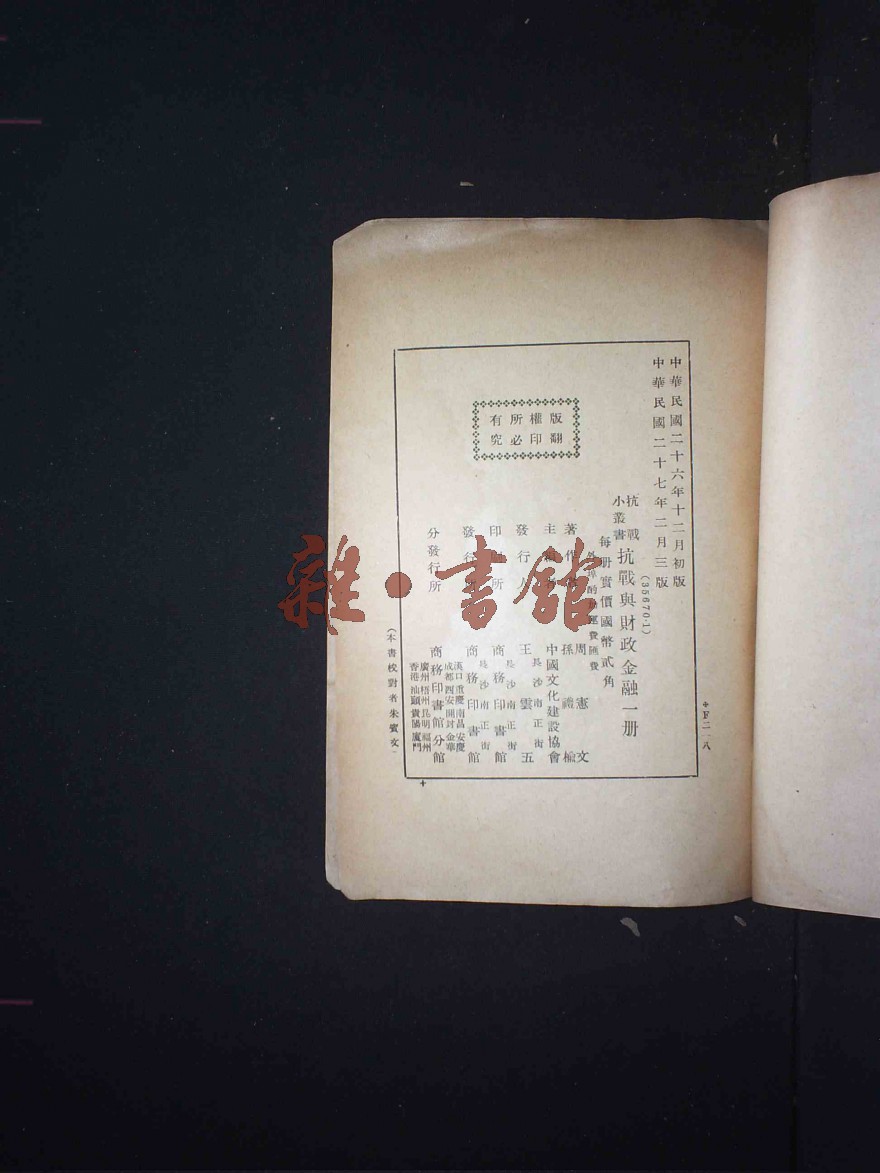 中華民國二十六年十二月初版
中華民國二十七年二月三版
(35670·1)
抗戰小叢書
抗戰與財政金融一册
每册實價國幣貳角
外埠酌加運費匯費
著作者
周憲文
孫禮榆
主編者
中國文化建設協會
發行人
王雲五
長沙南正街
印刷所
商務印書館
長沙南正街
發行所
商務印書館
分發行所
商務印書館分館
漢口重慶南昌安慶
成都西安開封金華
廣州梧州昆明福州
香港汕頭貴陽廈門
版權所有
翻印必究
(本書校對者朱賓文)
*F二一八
雜·書館